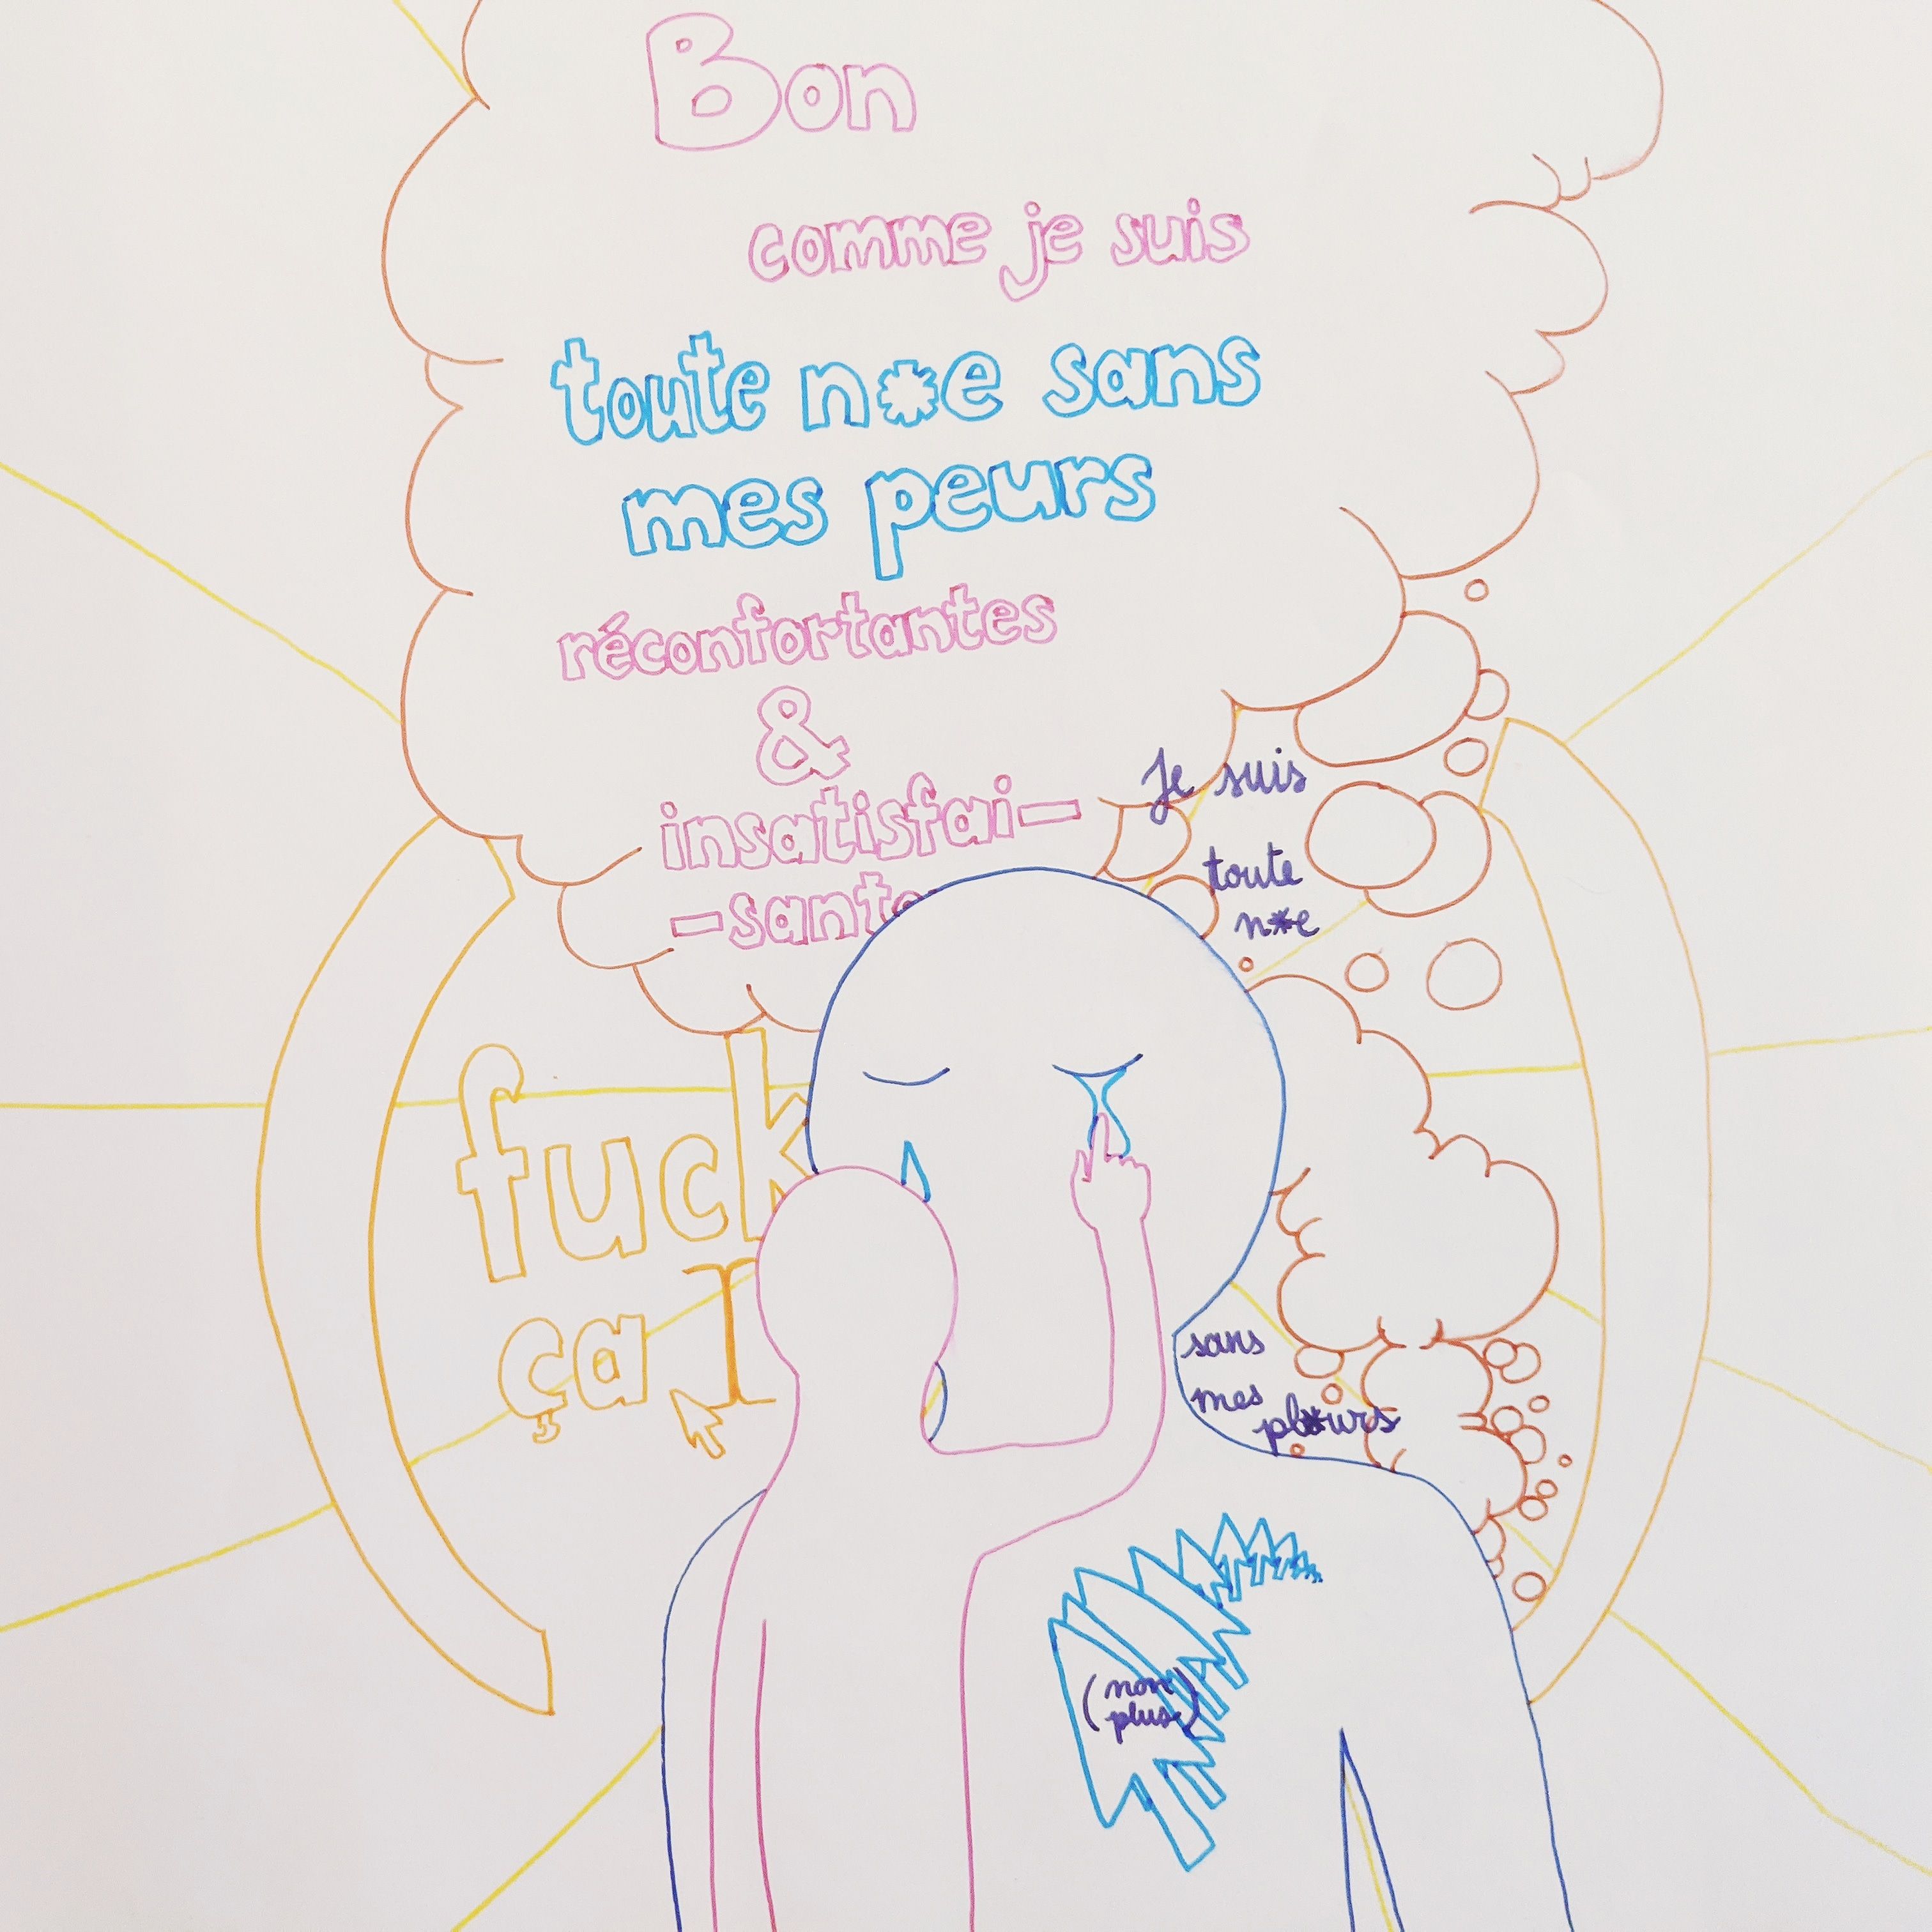 Bon
comme je suis
toute n*e sans
mes peurs
réconfortantes
&
insatisfai-
-sante
je suis
toute
n*e
fuck
ça
sans
mes
pl*urs
(non
plus)